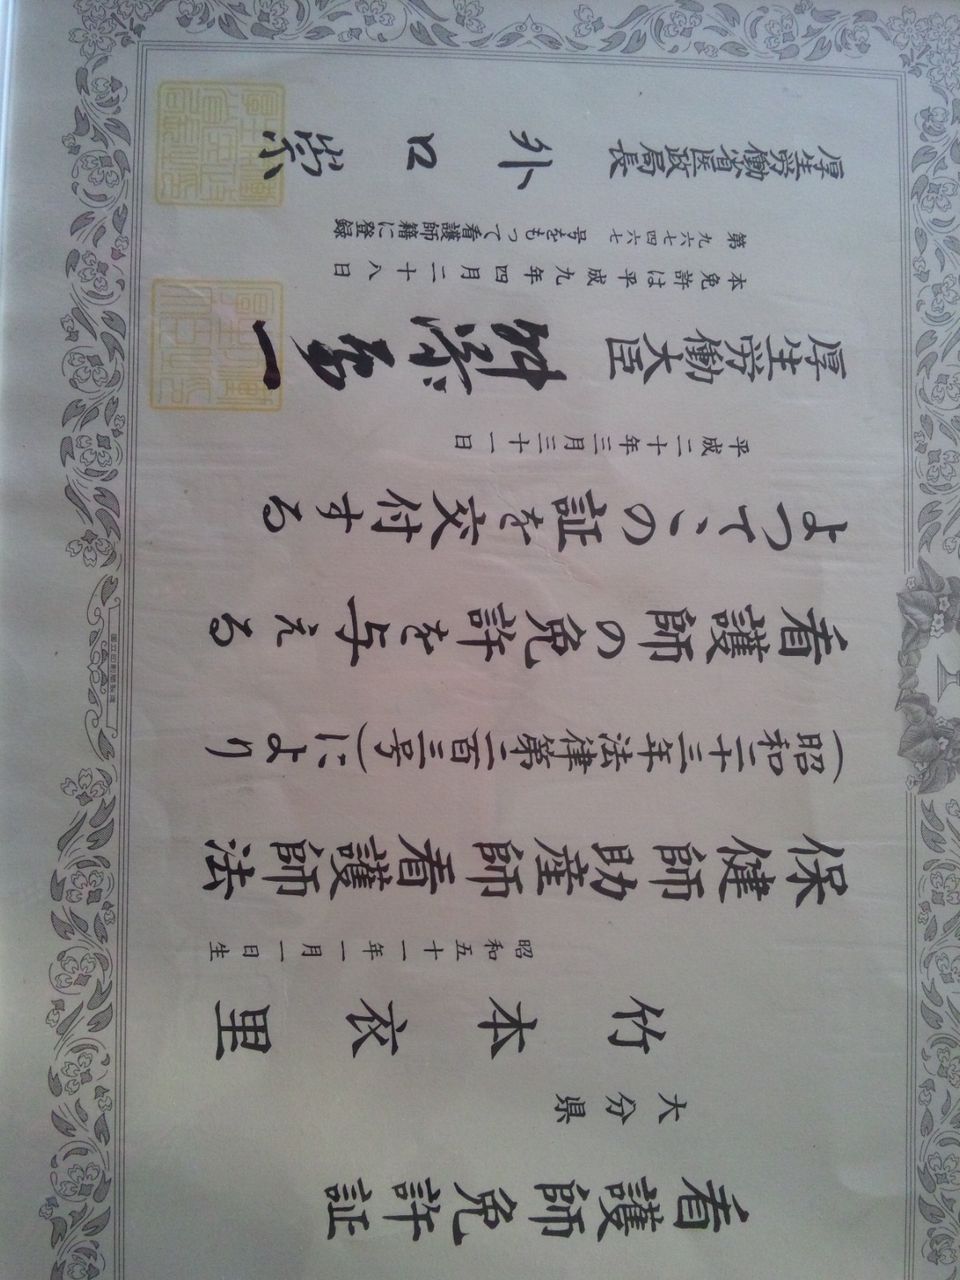 看護師免許証
大分県
竹本衣里
昭和五十一年一月一日生
保健師助産師看護師法
(昭和二十三年法律第二百三号)により
看護師の免許を与える
よって、この証を交付する
平成二十年三月三十一日
厚生労働大臣
本免許は平成九年四月二十八日
第九六七四六七号をもって看護師籍に登録
厚生労働省医政局長 外口崇